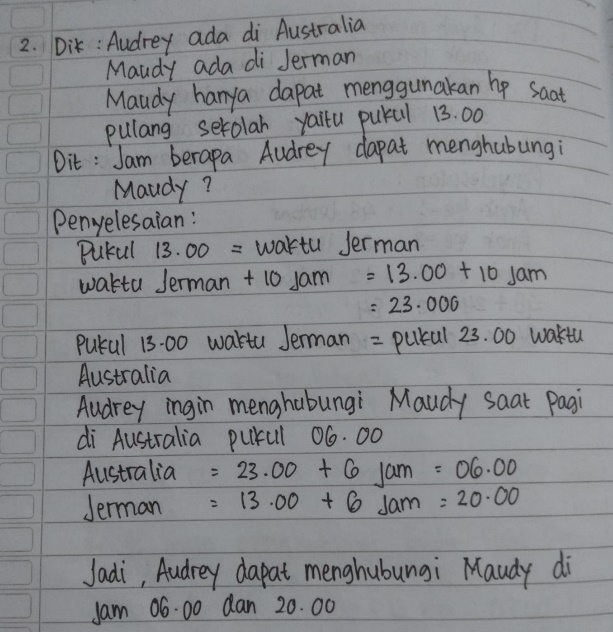 2. Dik : Audrey ada di Australia
Maudy ada di Jerman
Maudy hanya dapat menggunakan hp saat
pulang sekolah yaitu pukul 13.00
Dit : Jam berapa Audrey dapat menghubungi
Maudy ?
Penyelesaian :
Pukul 13.00 = waktu Jerman
waktu Jerman + 10 jam = 13.00 + 10 jam
= 23.000
Pukul 13.00 waktu Jerman = pukul 23.00 waktu
Australia
Audrey ingin menghubungi Maudy saat pagi
di Australia pukul 06.00
Australia = 23.00 + 6 jam = 06.00
Jerman = 13.00 + 6 jam = 20.00
Jadi, Audrey dapat menghubungi Maudy di
jam 06.00 dan 20.00